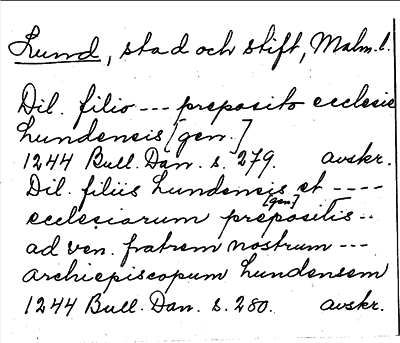 Lund, stad och stift, Malm. l.
Dil. filio --- preposito ecclesie
Lundensis [gen.]
1244 Bull. Dan. s. 279. avskr.
Dil. filiis Lundensis et ----
[gen]
ecclesiarum prepositis ..
ad ven. fratrem nostrum ---
archiepiscopum Lundensem
1244 Bull. Dan. s. 280. avskr.